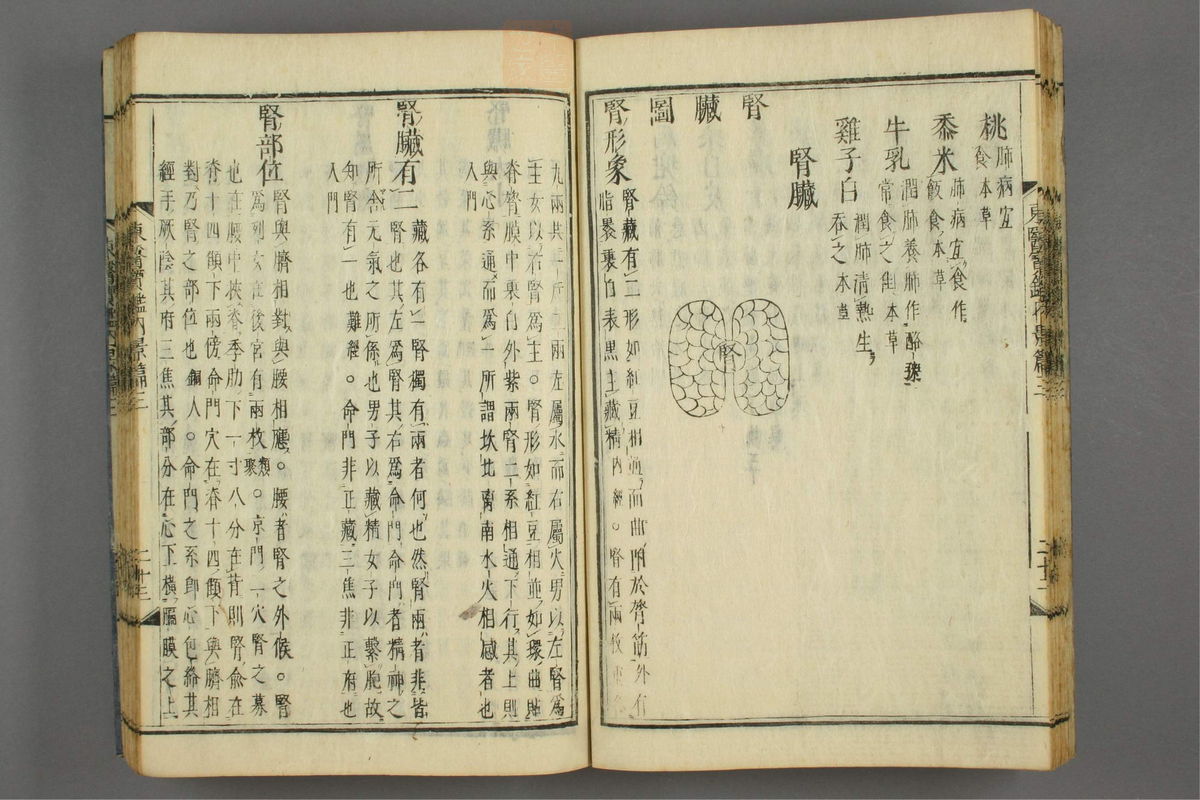 桃 肺病宜
食 本草
黍米 肺病宜食作
飯食 本草
牛乳 潤肺養肺作酪
常食之佳 本草
雞子白 潤肺清熱生
吞之 本草
腎臟
腎
臟
圖
腎
腎形象 腎藏有二形如紅豆相並而曲附於脊筋外有
脂裹裏白表黑主藏精 內經。腎有兩枚重各
九兩共一斤二兩左屬水而右屬火男以左腎爲
主女以右腎爲主。腎形如紅豆相並如環曲貼
脊膂膜中裏白外紫兩腎二系相通下行其上則
與心系通而爲一所謂坎北离南水火相感者也
入門
腎臟有二 藏各有一腎獨有兩者何也然腎兩者非皆
腎也其左爲腎其右爲命門命門者精神之
所舍元氣之所係也男子以藏精女子以繫胞故
知腎有一也 難經。命門非正藏三焦非正府也
入門
腎部位 腎與臍相對與腰相應。腰者腎之外候。腎
爲列女在後宮有兩枚 類聚。京門二穴腎之募
也在腰中挾脊季肋下一寸八分在背則腎兪在
脊十四顀下兩傍命門穴在脊十四顀下與臍相
對乃腎之部位也 銅人。命門之系卽心包絡其
經手厥陰其府三焦其部分在心下橫膈膜之上
東醫寶鑑內景篇三
二十三